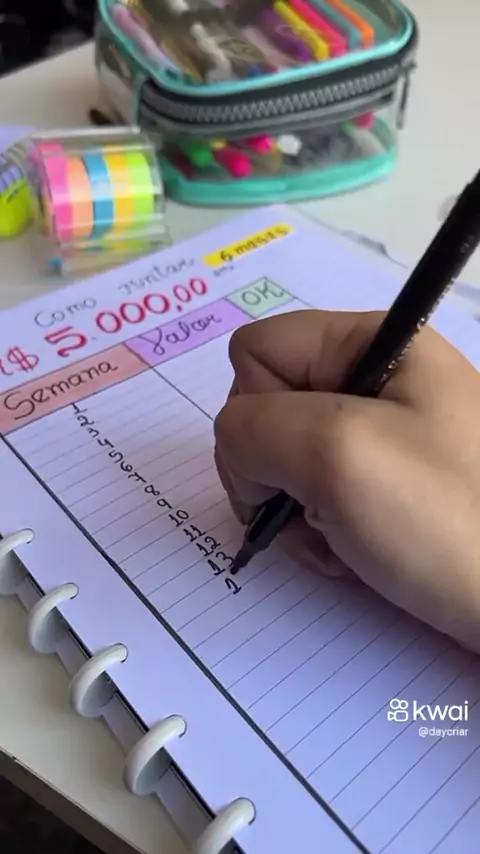 Como juntar
R$ 5.000,00 em 6 meses
Semana Valor OK
1
2
3
4
5
6
7
8
9
10
11
12
13
1
kwai
@daycriar